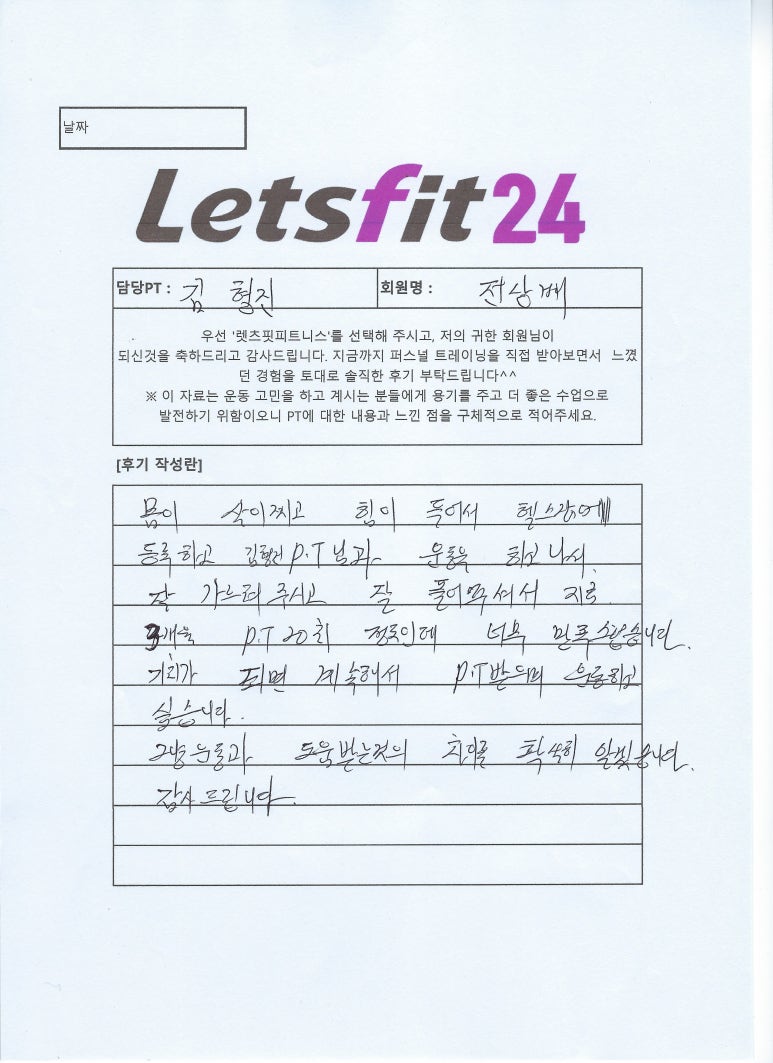 날짜
Letsfit24
담당PT : 김 형진
회원명 : 전상배
우선 '렛츠핏피트니스'를 선택해 주시고, 저의 귀한 회원님이
되신것을 축하드리고 감사드립니다. 지금까지 퍼스널 트레이닝을 직접 받아보면서 느꼈
던 경험을 토대로 솔직한 후기 부탁드립니다^^
※ 이 자료는 운동 고민을 하고 계시는 분들에게 용기를 주고 더 좋은 수업으로
발전하기 위함이오니 PT에 대한 내용과 느낀 점을 구체적으로 적어주세요.
[후기 작성란]
몸이 살이찌고 힘이 들어서 헬스장에
등록하고 김형진 P.T님과 운동을 하고나서
잘 가르쳐주시고 잘 풀어주셔서
3개월 P.T 20회 정도인데 너무 만족스럽습니다.
기회가 되면 계속해서 P.T받으며 운동하고
싶습니다.
그냥운동과 도움받는것의 차이를 확실히 알겠습니다.
감사드립니다.